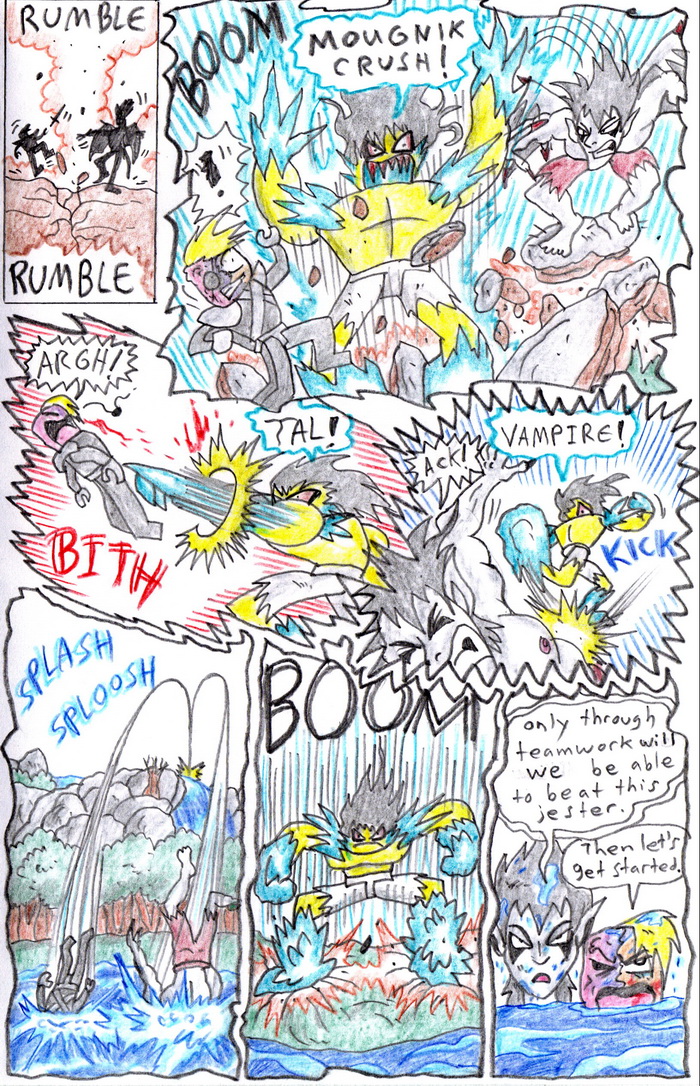 RUMBLE
RUMBLE
BOOM
MOUGNIK
CRUSH!
!
ARGH!
TAL!
BITH
ACK!
VAMPIRE!
KICK
SPLASH
SPLOOSH
BOOM
only through
teamwork will
we be able
to beat this
jester.
Then let's
get started.